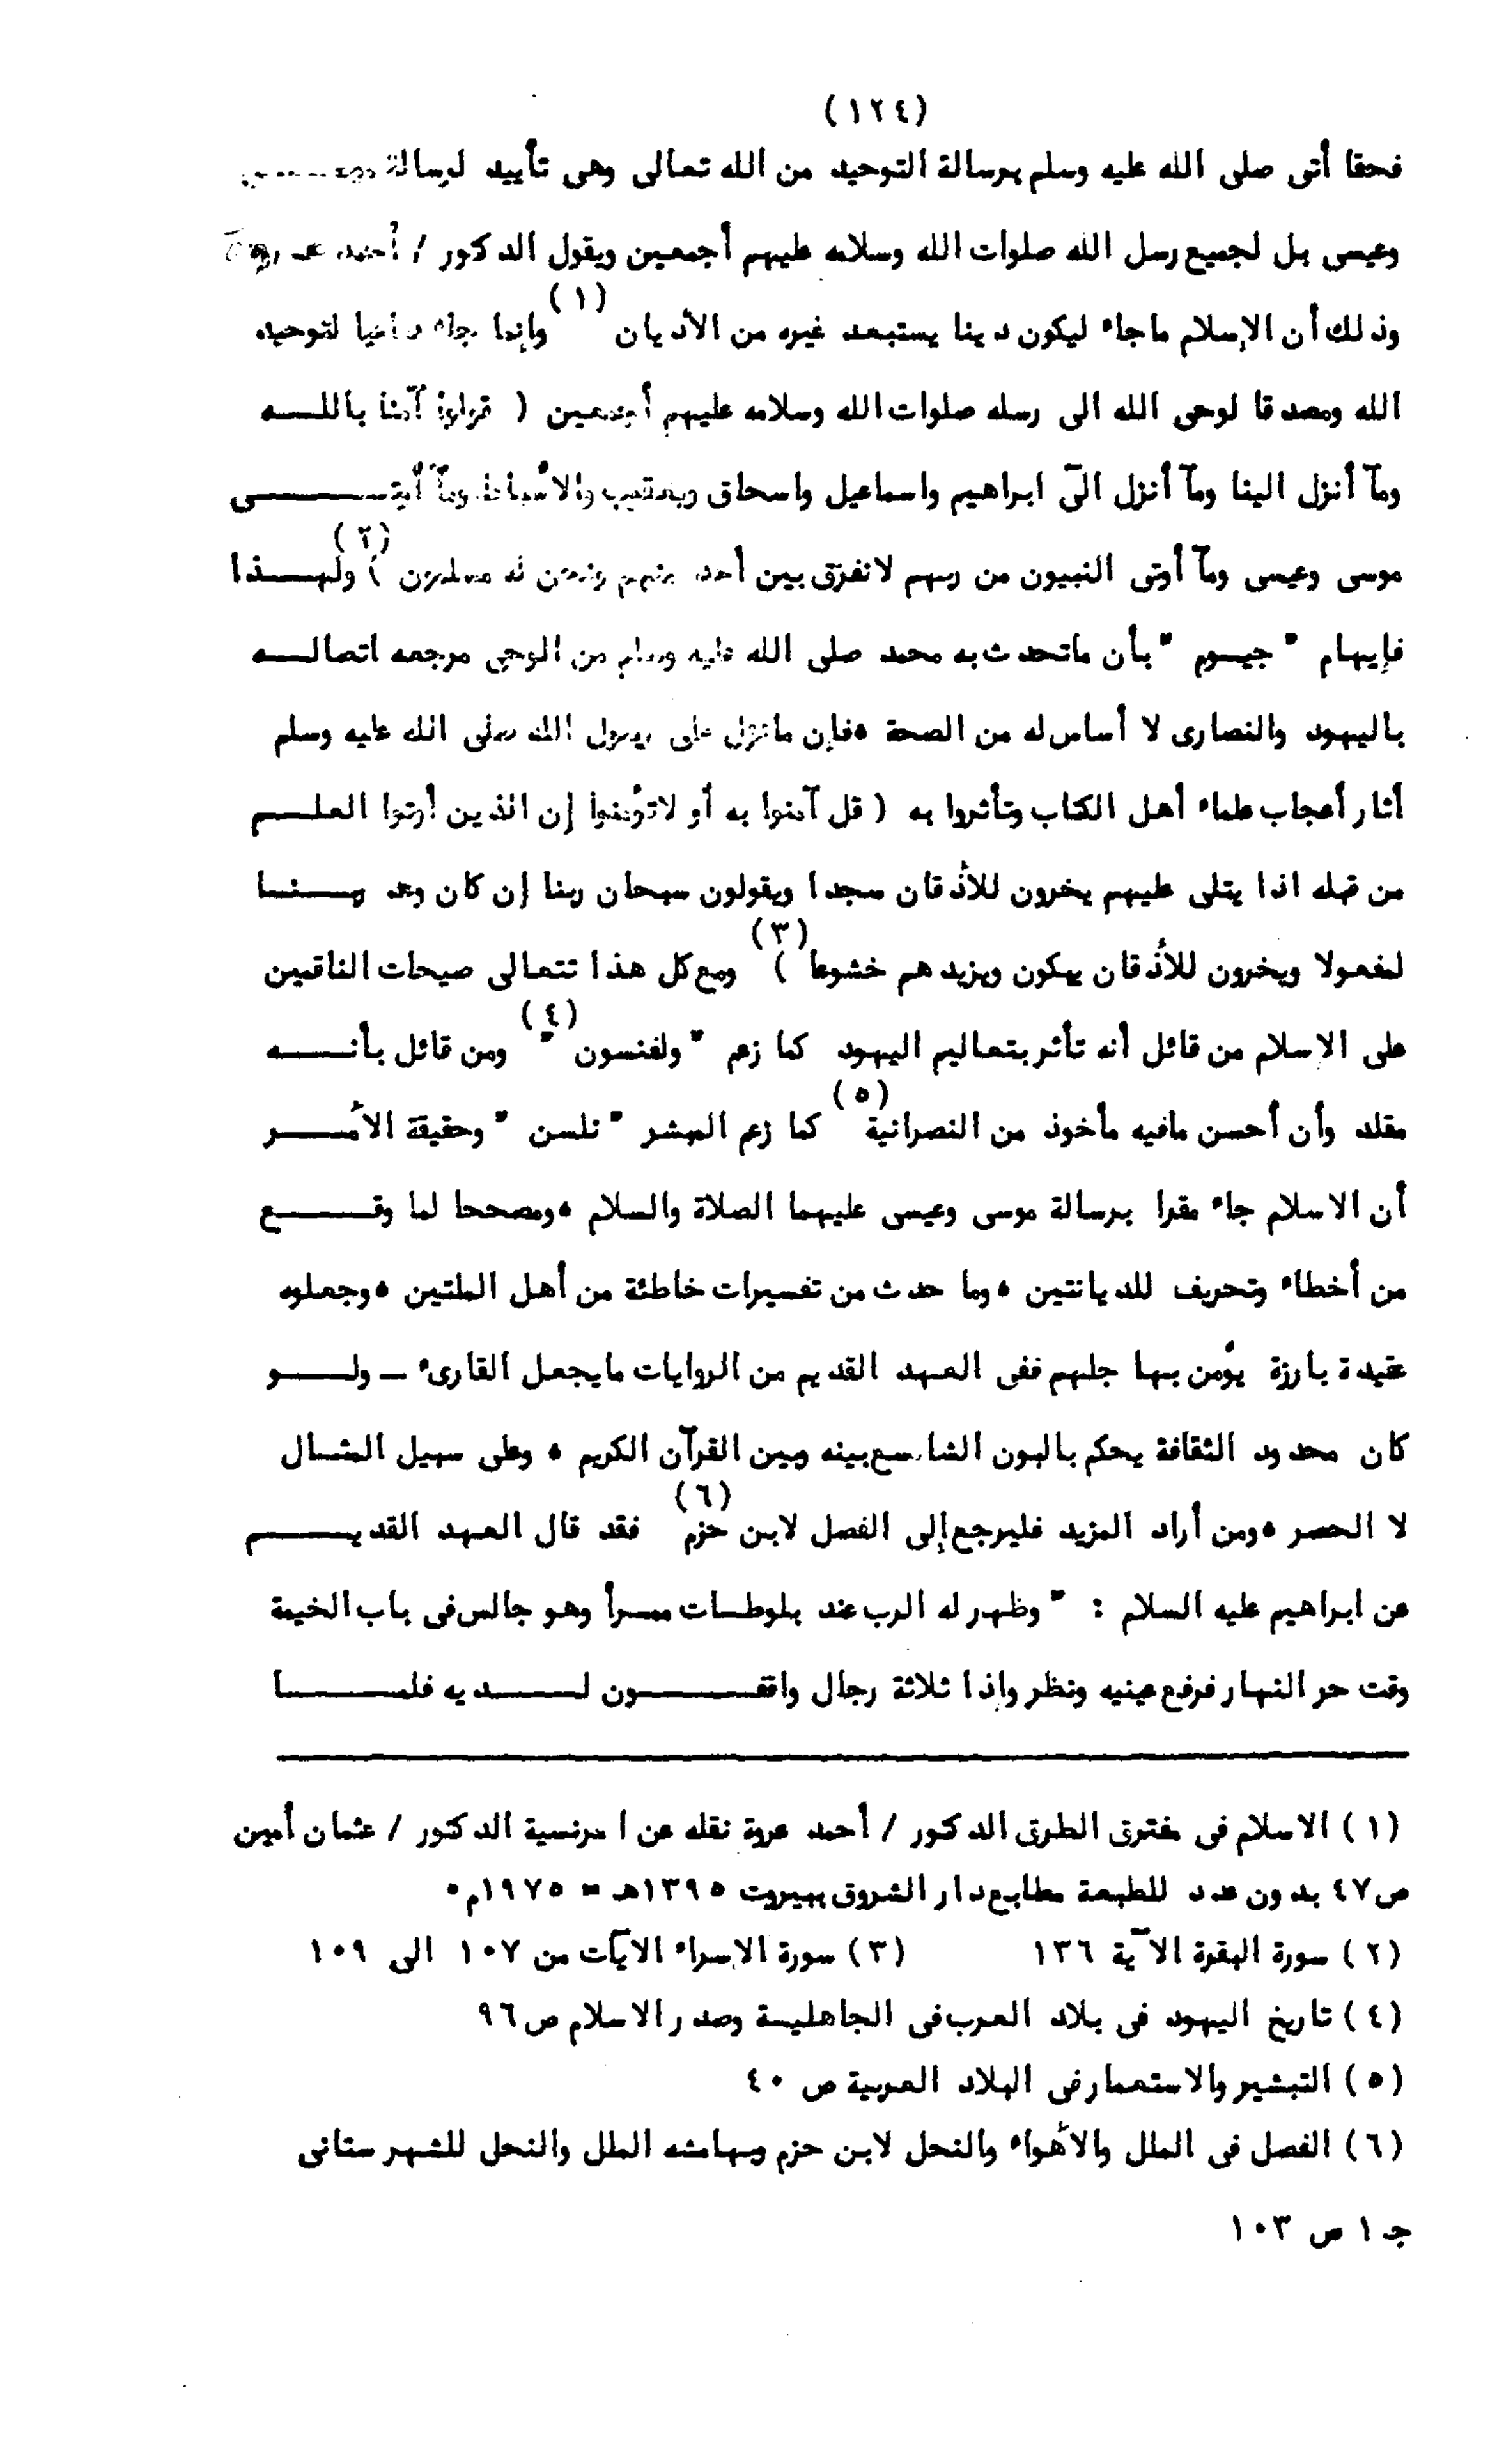 (١٢٤)
فحقا أتى صلى الله عليه وسلم برسالة التوحيد من الله تعالى وهى تأييد لرسالة
وعيسى بل لجميع رسل الله صلوات الله وسلامه عليهم أجمعين ويقول الدكتور / أحمد عروة
وذلك أن الإسلام ماجاء ليكون دينا يستبعد غيره من الأديان (١) وإنما جاء داعيا لتوحيد
الله ومصدقا لوحى الله الى رسله صلوات الله وسلامه عليهم أجمعين ( قولوا آمنا باللــه
ومآ أنزل الينا ومآ أنزل الىٓ ابراهيم واسماعيل واسحاق ويعقوب والأسباط ومآ أوتــى
موسى وعيسى ومآ أوتى النبيون من ربهم لانفرق بين أحد منهم ونحن له مسلمون ) (٢) ولهــذا
فإيهام " جيــوم " بأن ماتحدث به محمد صلى الله عليه وسلم من الوحى مرجعه اتصالــه
باليهود والنصارى لا أساس له من الصحة ، فإن مانزل على رسول الله صلى الله عليه وسلم
أثار أعجاب علماء أهل الكتاب وتأثروا به ( قل آمنوا به أو لاتؤمنوا إن الذين أوتوا العلــم
من قبله اذا يتلى عليهم يخرون للأذقان سجدا ويقولون سبحان ربنا إن كان وعد ربــنــا
لمفعولا ويخرون للأذقان يبكون ويزيدهم خشوعا ) (٣) ومع كل هذا تتعالى صيحات الناقمين
على الاسلام من قائل أنه تأثر بتعاليم اليهود كما زعم " ولفنسون " (٤) ومن قائل بأنــه
مقلد وأن أحسن مافيه مأخوذ من النصرانية (٥) كما زعم المبشر " نلسن " وحقيقة الأمــر
أن الاسلام جاء مقرا برسالة موسى وعيسى عليهما الصلاة والسلام ، ومصححا لما وقــع
من أخطاء وتحريف للديانتين ، وما حدث من تفسيرات خاطئة من أهل الملتين ، وجعلوه
عقيدة بارزة يؤمن بها جلهم ففى العهد القديم من الروايات مايجعل القارىء ـ ولــو
كان محدود الثقافة يحكم بالبون الشاسع بينه وبين القرآن الكريم ، وعلى سبيل المثــال
لا الحصر ، ومن أراد المزيد فليرجع إلى الفصل لابن حزم (٦) فقد قال العهد القديــم
عن ابراهيم عليه السلام : " وظهر له الرب عند بلوطــات ممــرأ وهو جالس فى باب الخيمة
وقت حر النهار فرفع عينيه ونظر واذا ثلاثة رجال واقفــون لــديه فلمــا
(١) الاسلام فى مفترق الطرق الدكتور / أحمد عروة نقله عن الفرنسية الدكتور / عثمان أمين
ص٤٧ بدون عدد للطبعة مطابع دار الشروق ببيروت ١٣٩٥هـ = ١٩٧٥م ٠
(٢) سورة البقرة الآية ١٣٦ (٣) سورة الاسراء الآيات من ١٠٧ الى ١٠٩
(٤) تاريخ اليهود فى بلاد العرب فى الجاهليــة وصدر الاسلام ص ٩٦
(٥) التبشير والاستعمار فى البلاد العربية ص ٤٠
(٦) الفصل فى الملل والأهواء والنحل لابن حزم وبهامشه الملل والنحل للشهرستانى
جـ ١ ص ١٠٣